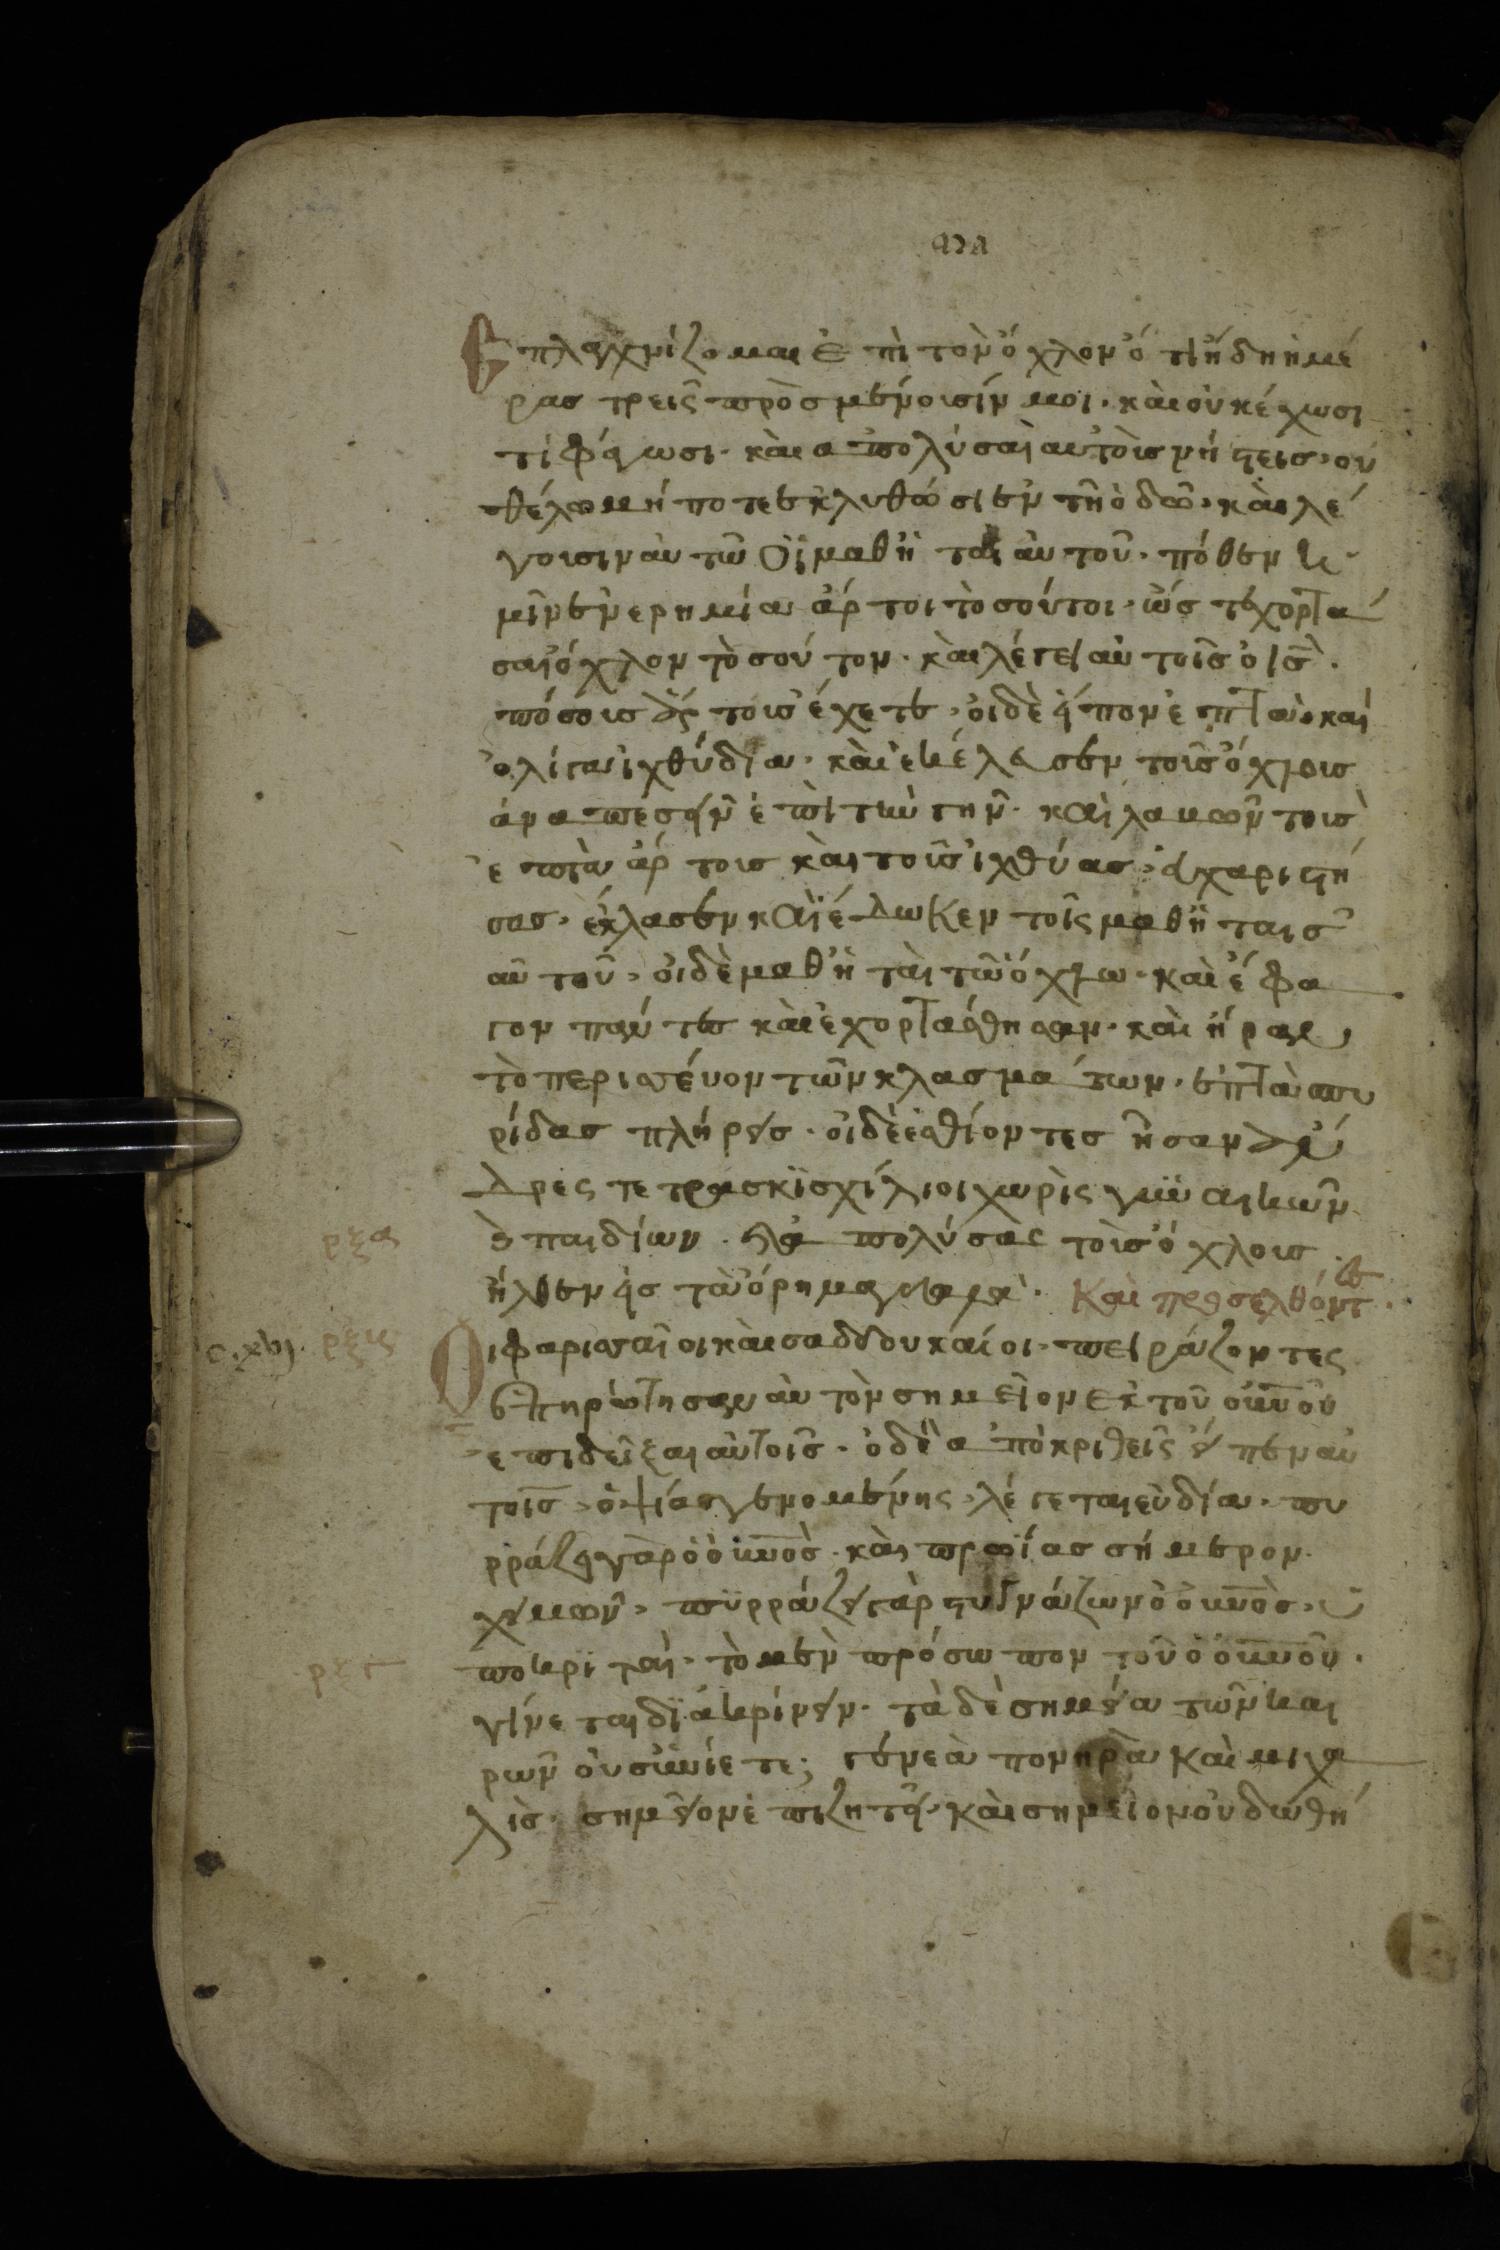 Ϲπλαγχνίζομαι ἐπὶ τὸν ὄχλον ὅτι ἤδη ἡμέ
ρας τρεῖς πρὸσμένουσίν μοι· καὶ οὐκ έχωσι
τί φάγωσι· καὶ ἀπολύσαι αὐτοὺς νήστεις, οὐ
θέλω μήποτε ἐκλυθώσι ἐν τῆ ὁδῶ· καὶ λέ
γουσιν αὐτῶ οἱ μαθηταὶ αὐτοῦ· πόθεν ἡ
μῖν ἐν ερημία ἄρτοι τοσούτοι· ὡς τέ χορτά
σαι ὄχλον τοσούτον· καὶ λέγει αὐτοῖς ὁ ις̅·
πόσους ἄρτους έχετε· οἱ δὲ εἶπον ἑπτὰ· καὶ
ὀλίγα ἰχθύδια· καὶ ἐκέλευσεν τοῖς ὄχλοις
ἀναπεσεῖν ἐπὶ τὴν γην· καὶ λαβὼν τοὺς
ἑπτὰ ἄρτους καὶ τοῦς ἰχθύας· εὐχαριστή
σας· έκλασεν καὶ έδωκεν τοῖς μαθηταις
αὐτοῦ· οἱ δὲ μαθηταὶ τῶ ὄχλω· καὶ έφα
γον πάντες καὶ ἐχορτάσθησαν· καὶ ήραν
τὸ περισσέυον τῶν κλασμάτων· ἑπτὰ σπυ
ρίδας πλήρεις· οἱ δὲ ἐσθίοντες ἦσαν ἄν
δρες τετρακισχίλιοι χωρὶς γυναικῶν
ρξα καὶ παιδίων· καὶ ἀπολύσας τοὺς όχλους
ήλθεν εἰς τὰ ὅρη μαγδαλὰ· Καὶ προσελθόντες·
c. xvj. ρξβ Οἱ φαρισαῖοι καὶ σαδδουκαίοι· πειράζοντες
ἐπηρώτησαν αὐτὸν σημεῖον ἐκ τοῦ οὐνοῦ
ἐπιδεῖξαι αὐτοῖς· ὁ δὲ ἀποκριθεὶς εἶπεν αὐ
τοῖς· ὀψίας γενομένης· λέγεται εὐδία· πυ
ρράζει γὰρ ὁ οὐνος· καὶ πρωΐας σήμερον
χειμὼν· πυρράζει γὰρ στυγνάζων ὁ οὐνος· ὑ
ρξγ ποκριταὶ· τὸ μὲν πρόσωπον τοῦ οὐνοῦ·
γίνεται διάκρίνειν· τὰ δὲ σημεία τῶν και
ρῶν οὐ συνίετε; γενεὰ πονηρὰ καὶ μιχα
λὶς· σημεῖον ἐπιζητεῖ· καὶ σημεῖον οὐ δωθή